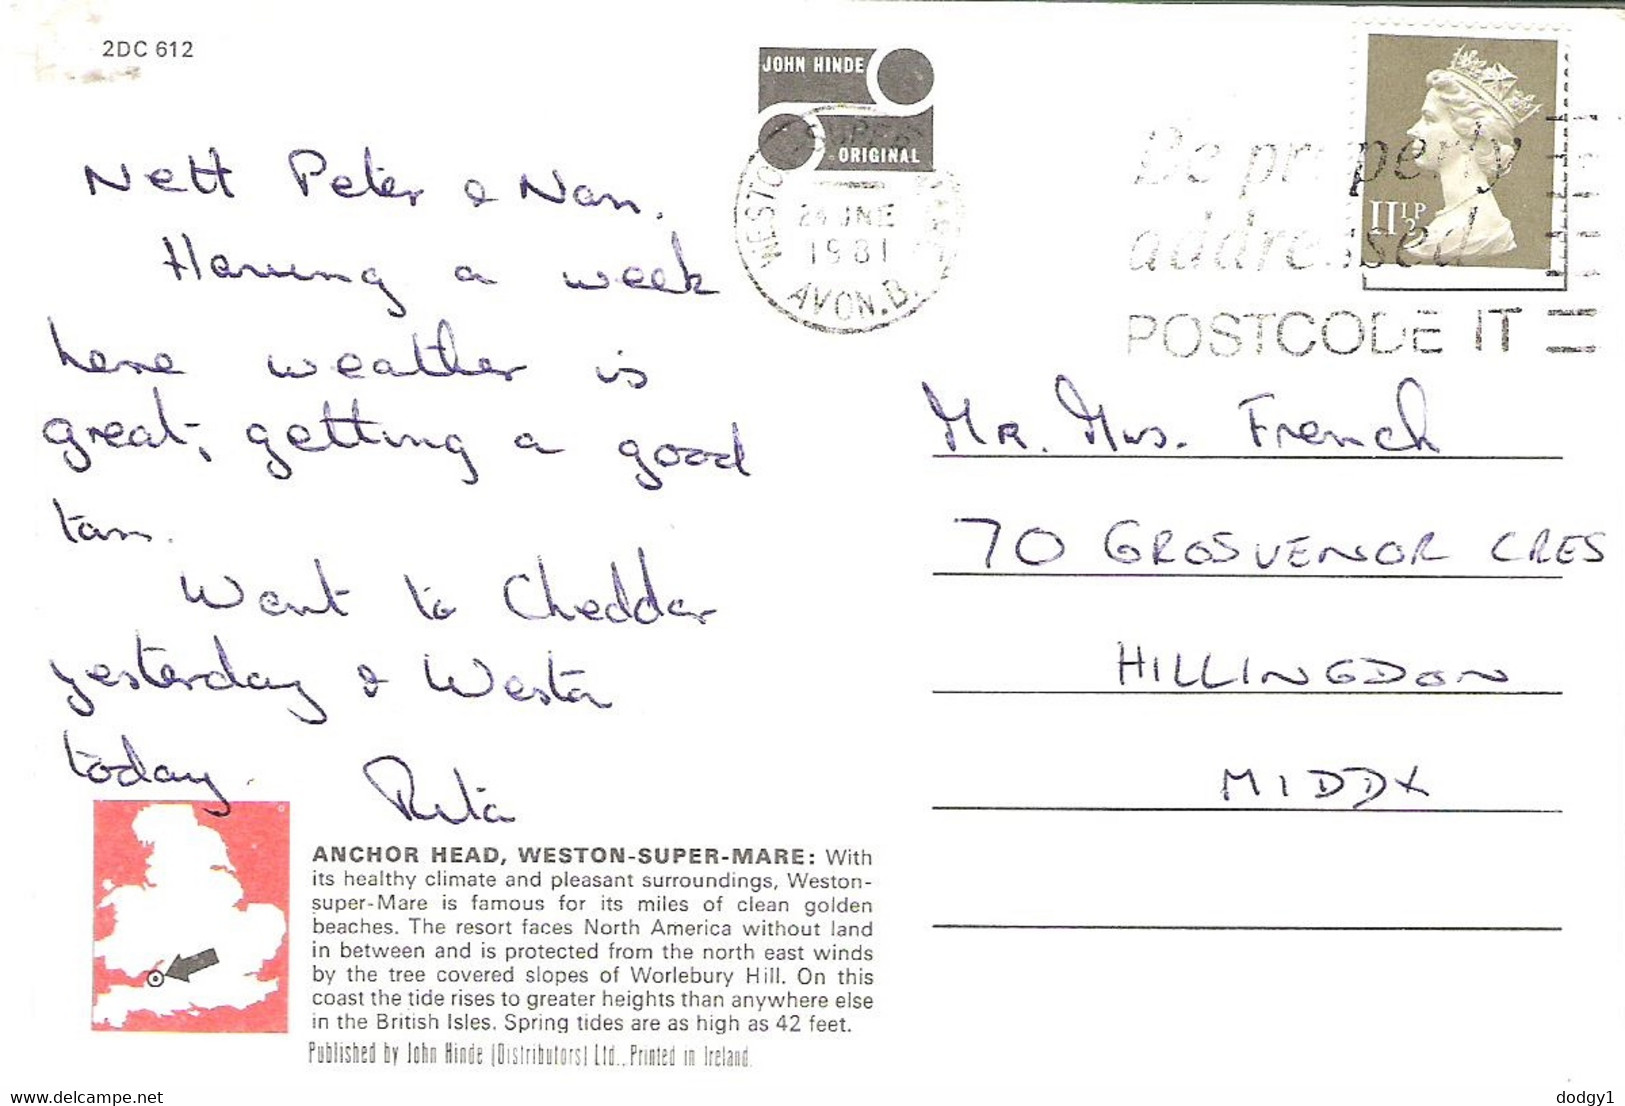 2DC 612
JOHN HINDE
ORIGINAL
WESTON SUPER MARE
24 JNE
1981
AVON.B.
Be properly
addressed
POSTCODE IT
11½P
Nett Peter & Nan.
Having a week
here weather is
great, getting a good
tan.
Went to Cheddar
yesterday & Weston
today.
Rita
Mr. Mrs. French
70 GROSVENOR CRES
HILLINGDON
MIDDX
ANCHOR HEAD, WESTON-SUPER-MARE: With
its healthy climate and pleasant surroundings, Weston-
super-Mare is famous for its miles of clean golden
beaches. The resort faces North America without land
in between and is protected from the north east winds
by the tree covered slopes of Worlebury Hill. On this
coast the tide rises to greater heights than anywhere else
in the British Isles. Spring tides are as high as 42 feet.
Published by John Hinde (Distributors) Ltd., Printed in Ireland.
delcampe.net
dodgy1